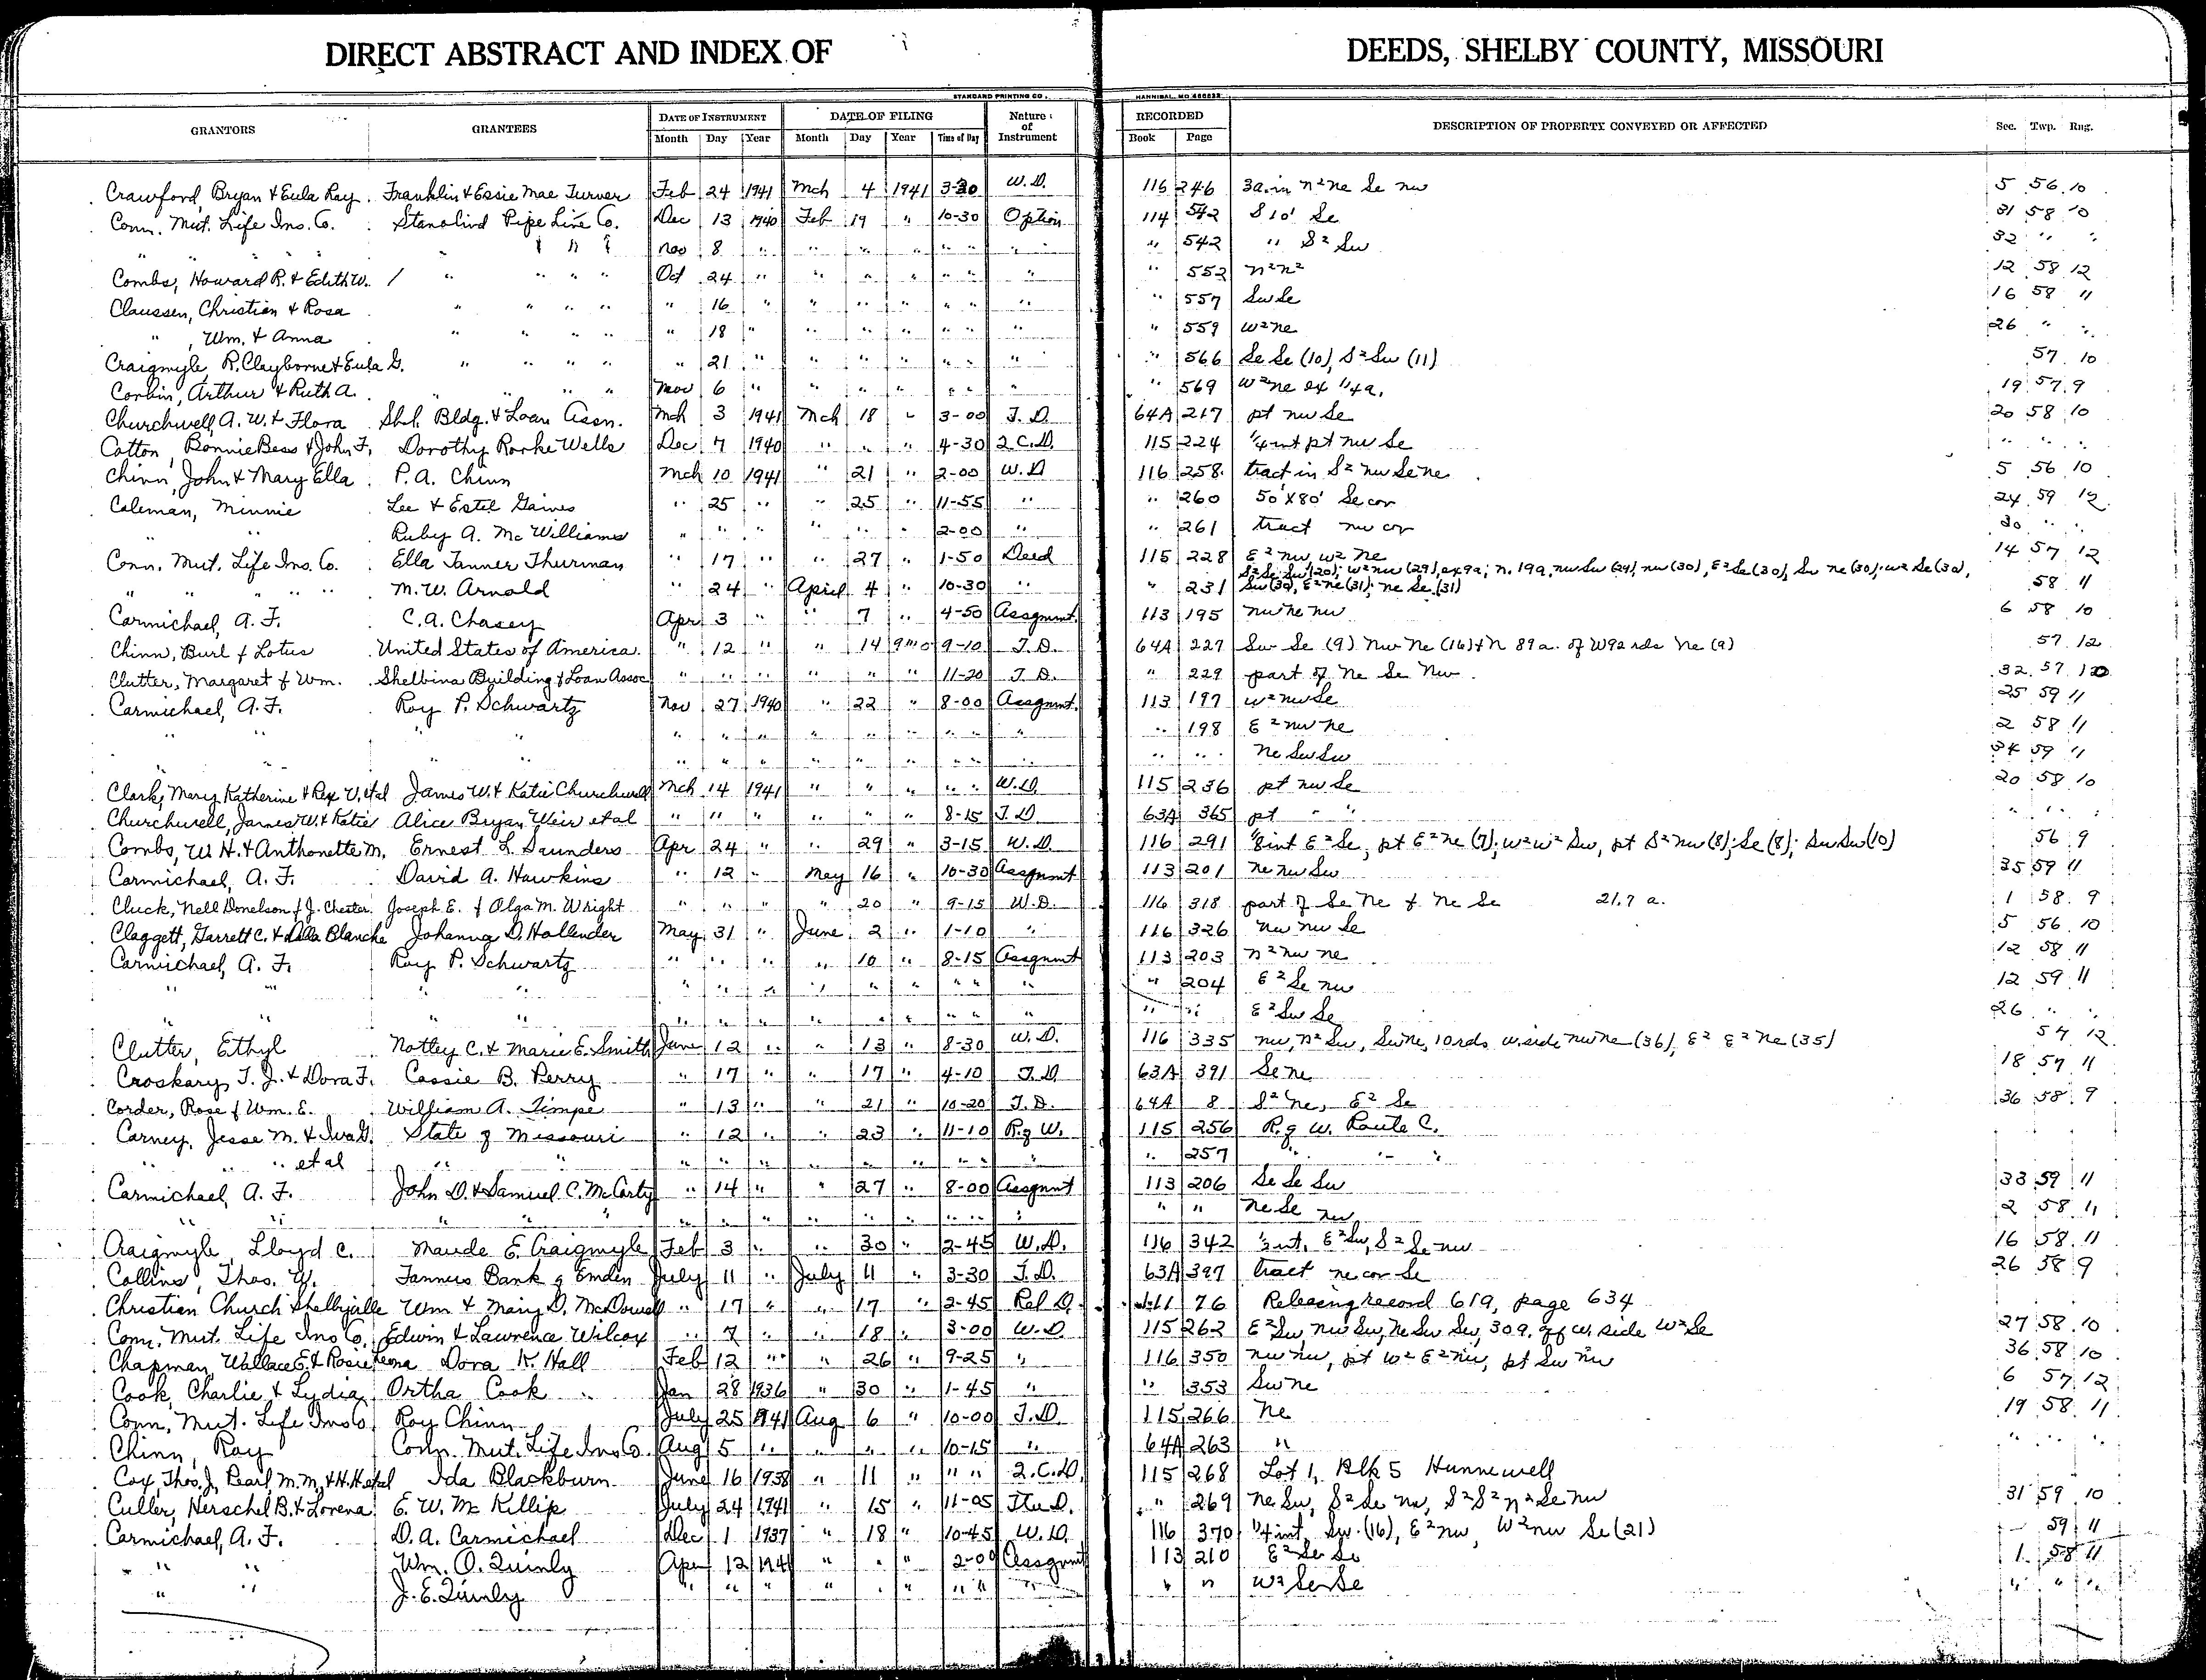 DIRECT ABSTRACT AND INDEX OF DEEDS, SHELBY COUNTY, MISSOURI
STANDARD PRINTING CO., HANNIBAL, MO
GRANTORS GRANTEES DATE OF INSTRUMENT DATE OF FILING Nature of Instrument RECORDED DESCRIPTION OF PROPERTY CONVEYED OR AFFECTED Sec. Twp. Rng.
Month Day Year Month Day Year Time of Day Book Page
Crawford, Bryan & Eula Ray Franklin & Essie Mae Turner Feb 24 1941 Mch 4 1941 3-30 W.D. 116 246 3a. in n² ne Se nw 5 56 10
Conn. Mut. Life Ins. Co. Stanolind Pipe Line Co. Dec 13 1940 Feb 19 " 10-30 Option 114 542 S 10' Se 31 58 10
" " " " " " " Nov 8 " " " " " " " " 542 " S² Sw 32 " "
Combs, Howard R. & Edith W. / " " " " Oct 24 " " " " " " " " 552 n² n² 12 58 12
Claussen, Christian & Rosa " " " " " 16 " " " " " " " " 557 Sw Se 16 58 11
" , Wm. & Anna " " " " " 18 " " " " " " " " 559 w² ne 26 " "
Craigmyle, R. Clayborne & Eula G. " " " " " 21 " " " " " " " " 566 Se Se (10), S² Sw (11) 57 10
Corbin, Arthur & Ruth A. " " " " Nov 6 " " " " " " " " 569 w² ne ex 1/4 a. 19 57 9
Churchwell, A. W. & Flora Shl. Bldg. & Loan Assn. Mch 3 1941 Mch 18 " 3-00 T.D. 64A 217 pt nw Se 20 58 10
Cotton, Bonnie Bess & John F. Dorothy Rorke Wells Dec 7 1940 " " " 4-30 2 C.D. 115 224 1/4 int pt nw Se " " "
Chinn, John & Mary Ella P. A. Chinn Mch 10 1941 " 21 " 2-00 W.D 116 258 tract in S² nw Se ne 5 56 10
Coleman, Minnie Lee & Estel Gaines " 25 " " 25 " 11-55 " " 260 50' X 80' Se cor 24 59 12
" " Ruby A. McWilliams " " " " " " 2-00 " " 261 tract nw cor 30 " "
Conn. Mut. Life Ins. Co. Ella Tanner Thurman " 17 " " 27 " 1-50 Deed 115 228 E² nw, w² ne 14 57 12
" " " " " M. W. Arnold " 24 " April 4 " 10-30 " " 231 S² Se Sw (20); w² nw (29), ex 9a; n. 19a, nw Sw (29), nw (30), E² Se (30), Sw ne (30); w² Se (30),
Sw (30), E² ne (31); ne Se (31) 58 11
Carmichael, A. F. C. A. Chasey Apr 3 " " 7 " 4-50 Assgnmt. 113 195 nw ne nw 6 58 10
Chinn, Burl & Lotus United States of America " 12 " " 14 9-10 T.D. 64A 227 Sw Se (9) Nw Ne (16) & N 89a. of W 92 rds Ne (9) 57 12
Clutter, Margaret & Wm. Shelbina Building & Loan Assoc " " " " " " 11-20 T.D. " 229 part of Ne Se Nw 32 57 10
Carmichael, A. F. Roy P. Schwartz Nov 27 1940 " 22 " 8-00 Assgnmt. 113 197 w² nw Se 25 59 11
" " " " " " " " " " " " " 198 E² nw ne 2 58 11
" " " " " " " " " " " " " " ne Sw Sw 34 59 11
Clark, Mary Katherine & Rex V. et al James W. & Katie Churchwell Mch 14 1941 " " " " W.D. 115 236 pt nw Se 20 58 10
Churchwell, James W. & Katie Alice Bryan Weir et al " " " " " " 8-15 T.D. 63A 365 pt " " " " "
Combs, W H. & Anthonette M. Ernest L. Saunders Apr 24 " " 29 " 3-15 W.D. 116 291 1/8 int E² Se, pt E² ne (7); w² w² Sw, pt S² nw (8); Se (8); Sw Sw (10) 56 9
Carmichael, A. F. David A. Hawkins " 12 " May 16 " 10-30 Assgnmt 113 201 ne nw Sw 35 59 11
Cluck, Nell Donelson & J. Chester Joseph E. & Olga M. Wright " " " " 20 " 9-15 W.D. 116 318 part of Se Ne & Ne Se 21.7 a. 1 58 9
Claggett, Garrett C. & Alla Blanche Johanna D. Hollender May 31 " June 2 " 1-10 " 116 326 nw nw Se 5 56 10
Carmichael, A. F. Roy P. Schwartz " " " " 10 " 8-15 Assgnmt 113 203 n² nw ne 12 58 11
" " " " " " " " " " " " " 204 E² Se nw 12 59 11
" " " " " " " " " " " " " " E² Sw Se 26 " "
Clutter, Ethyl Notley C. & Marie E. Smith June 12 " " 13 " 8-30 W.D. 116 335 nw, n² Sw, Sw ne, 10 rds w. side nw ne (36), E² E² ne (35) 57 12
Croskary, T. J. & Dora F. Cassie B. Perry " 17 " " 17 " 4-10 T.D 63A 391 Se ne 18 57 11
Corder, Rose & Wm. E. William A. Timpe " 13 " " 21 " 10-20 T.D. 64A 8 S² Ne, E² Se 36 58 9
Carney, Jesse M. & Iva G. State of Missouri " 12 " " 23 " 11-10 R. of W. 115 256 R. of W. Route C.
" " " et al " " " " " " " " " " " 257 " " "
Carmichael, A. F. John D. & Samuel C. McCarty " 14 " " 27 " 8-00 Assgnmt 113 206 Se Se Sw 33 59 11
" " " " " " " " " " " " " " " ne Se nw 2 58 11
Craigmyle, Lloyd C. Maude E. Craigmyle Feb 3 " " 30 " 2-45 W.D. 116 342 1/3 int. E² Sw, S² Se nw 16 58 11
Collins, Thos. W. Farmers Bank of Emden July 11 " July 11 " 3-30 T.D. 63A 397 tract ne cor Se 26 58 9
Christian Church Shelbyville Wm & Mary D. McDowell " 17 " " 17 " 2-45 Rel D. 111 76 Releasing record 619, page 634
Conn. Mut. Life Ins Co. Edwin & Lawrence Wilcox " 7 " " 18 " 3-00 W.D. 115 262 E² Sw, nw Sw, Ne Sw Sw, 30 a. off w. side w² Se 27 58 10
Chapman, Wallace E. & Rosie Leona Dora K. Hall Feb 12 " " 26 " 9-25 " 116 350 nw nw, pt w² E² nw, pt Sw nw 36 58 10
Cook, Charlie & Lydia Ortha Cook Jan 28 1936 " 30 " 1-45 " " 353 Sw ne 6 57 12
Conn. Mut. Life Ins Co. Roy Chinn July 25 1941 Aug 6 " 10-00 T.D. 115 266 Ne 19 58 11
Chinn, Roy Conn. Mut. Life Ins Co. Aug 5 " " " " 10-15 " 64A 263 " " " "
Cox, Thos. J, Pearl, M. M, & H. H et al Ida Blackburn June 16 1938 " 11 " " " 2.C.D. 115 268 Lot 1, Blk 5 Hunnewell
Culler, Herschel B. & Lorena E. W. McKillip July 24 1941 " 15 " 11-05 Tru D. " 269 ne Sw, S² Se nw, S² S² n² Se nw 31 59 10
Carmichael, A. F. D. A. Carmichael Dec 1 1937 " 18 " 10-45 W.D. 116 370 1/4 int. Sw (16), E² nw, W² nw Se (21) 59 11
" " Wm. O. Quinly Apr 12 1941 " " " 2-00 Assgnmt 113 210 E² Se Se 1 58 11
" " J. E. Quinly " " " " " " " " " " " w² Se Se " " "